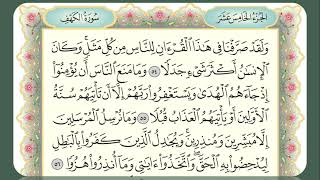 الجزء الخامس عشر
سورة الكهف
وَلَقَدْ صَرَّفْنَا فِي هَٰذَا ٱلْقُرْءَانِ لِلنَّاسِ مِن كُلِّ مَثَلٍ ۚ وَكَانَ
ٱلْإِنسَٰنُ أَكْثَرَ شَىْءٍ جَدَلًا ٥٤ وَمَا مَنَعَ ٱلنَّاسَ أَن يُؤْمِنُوٓا۟
إِذْ جَآءَهُمُ ٱلْهُدَىٰ وَيَسْتَغْفِرُوا۟ رَبَّهُمْ إِلَّآ أَن تَأْتِيَهُمْ سُنَّةُ
ٱلْأَوَّلِينَ أَوْ يَأْتِيَهُمُ ٱلْعَذَابُ قُبُلًا ٥٥ وَمَا نُرْسِلُ ٱلْمُرْسَلِينَ
إِلَّا مُبَشِّرِينَ وَمُنذِرِينَ ۚ وَيُجَٰدِلُ ٱلَّذِينَ كَفَرُوا۟ بِٱلْبَٰطِلِ
لِيُدْحِضُوا۟ بِهِ ٱلْحَقَّ ۖ وَٱتَّخَذُوٓا۟ ءَايَٰتِى وَمَآ أُنذِرُوا۟ هُزُوًا ٥٦